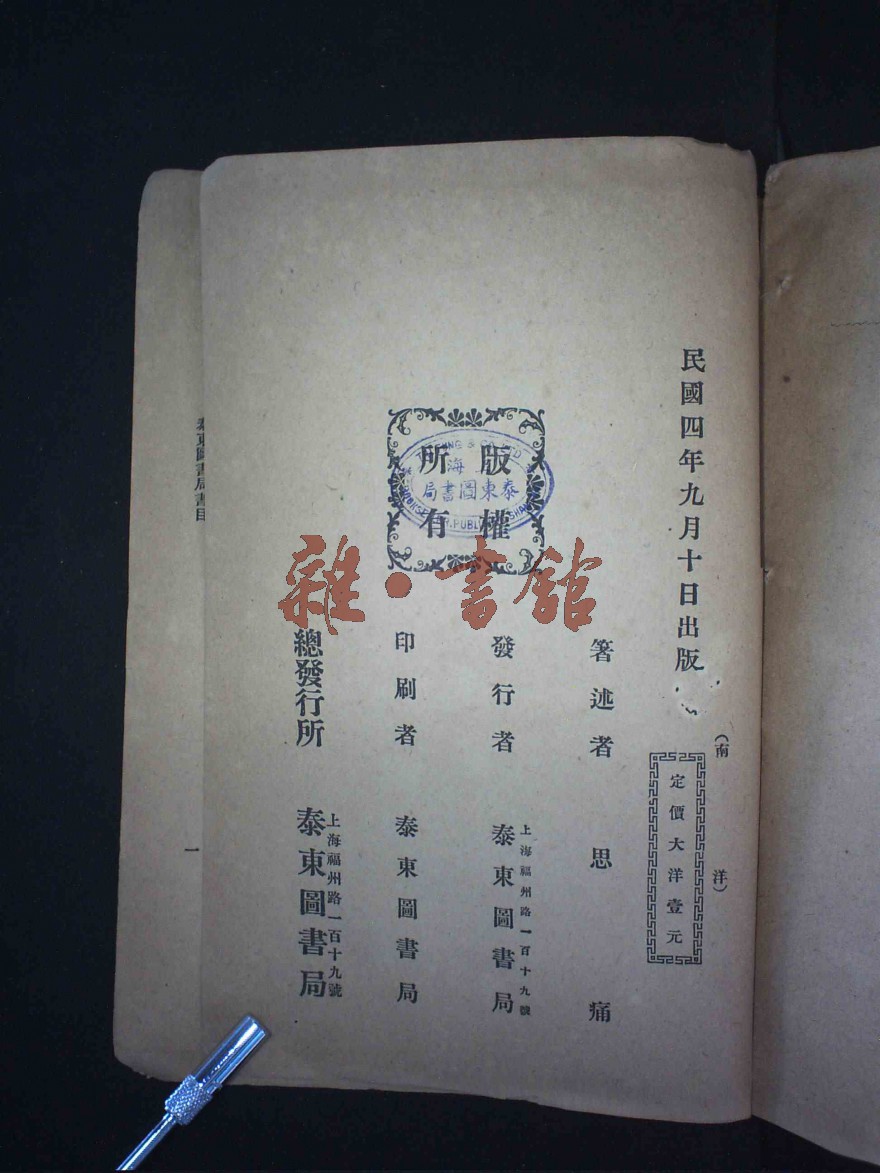 民國四年九月十日出版
（南洋）
定價大洋壹元
箸述者 思痛
發行者 泰東圖書局
上海福州路一百十九號
印刷者 泰東圖書局
總發行所 泰東圖書局
上海福州路一百十九號
版權
所有
海
泰東圖書局
雜·書館
泰東圖書局書目
一